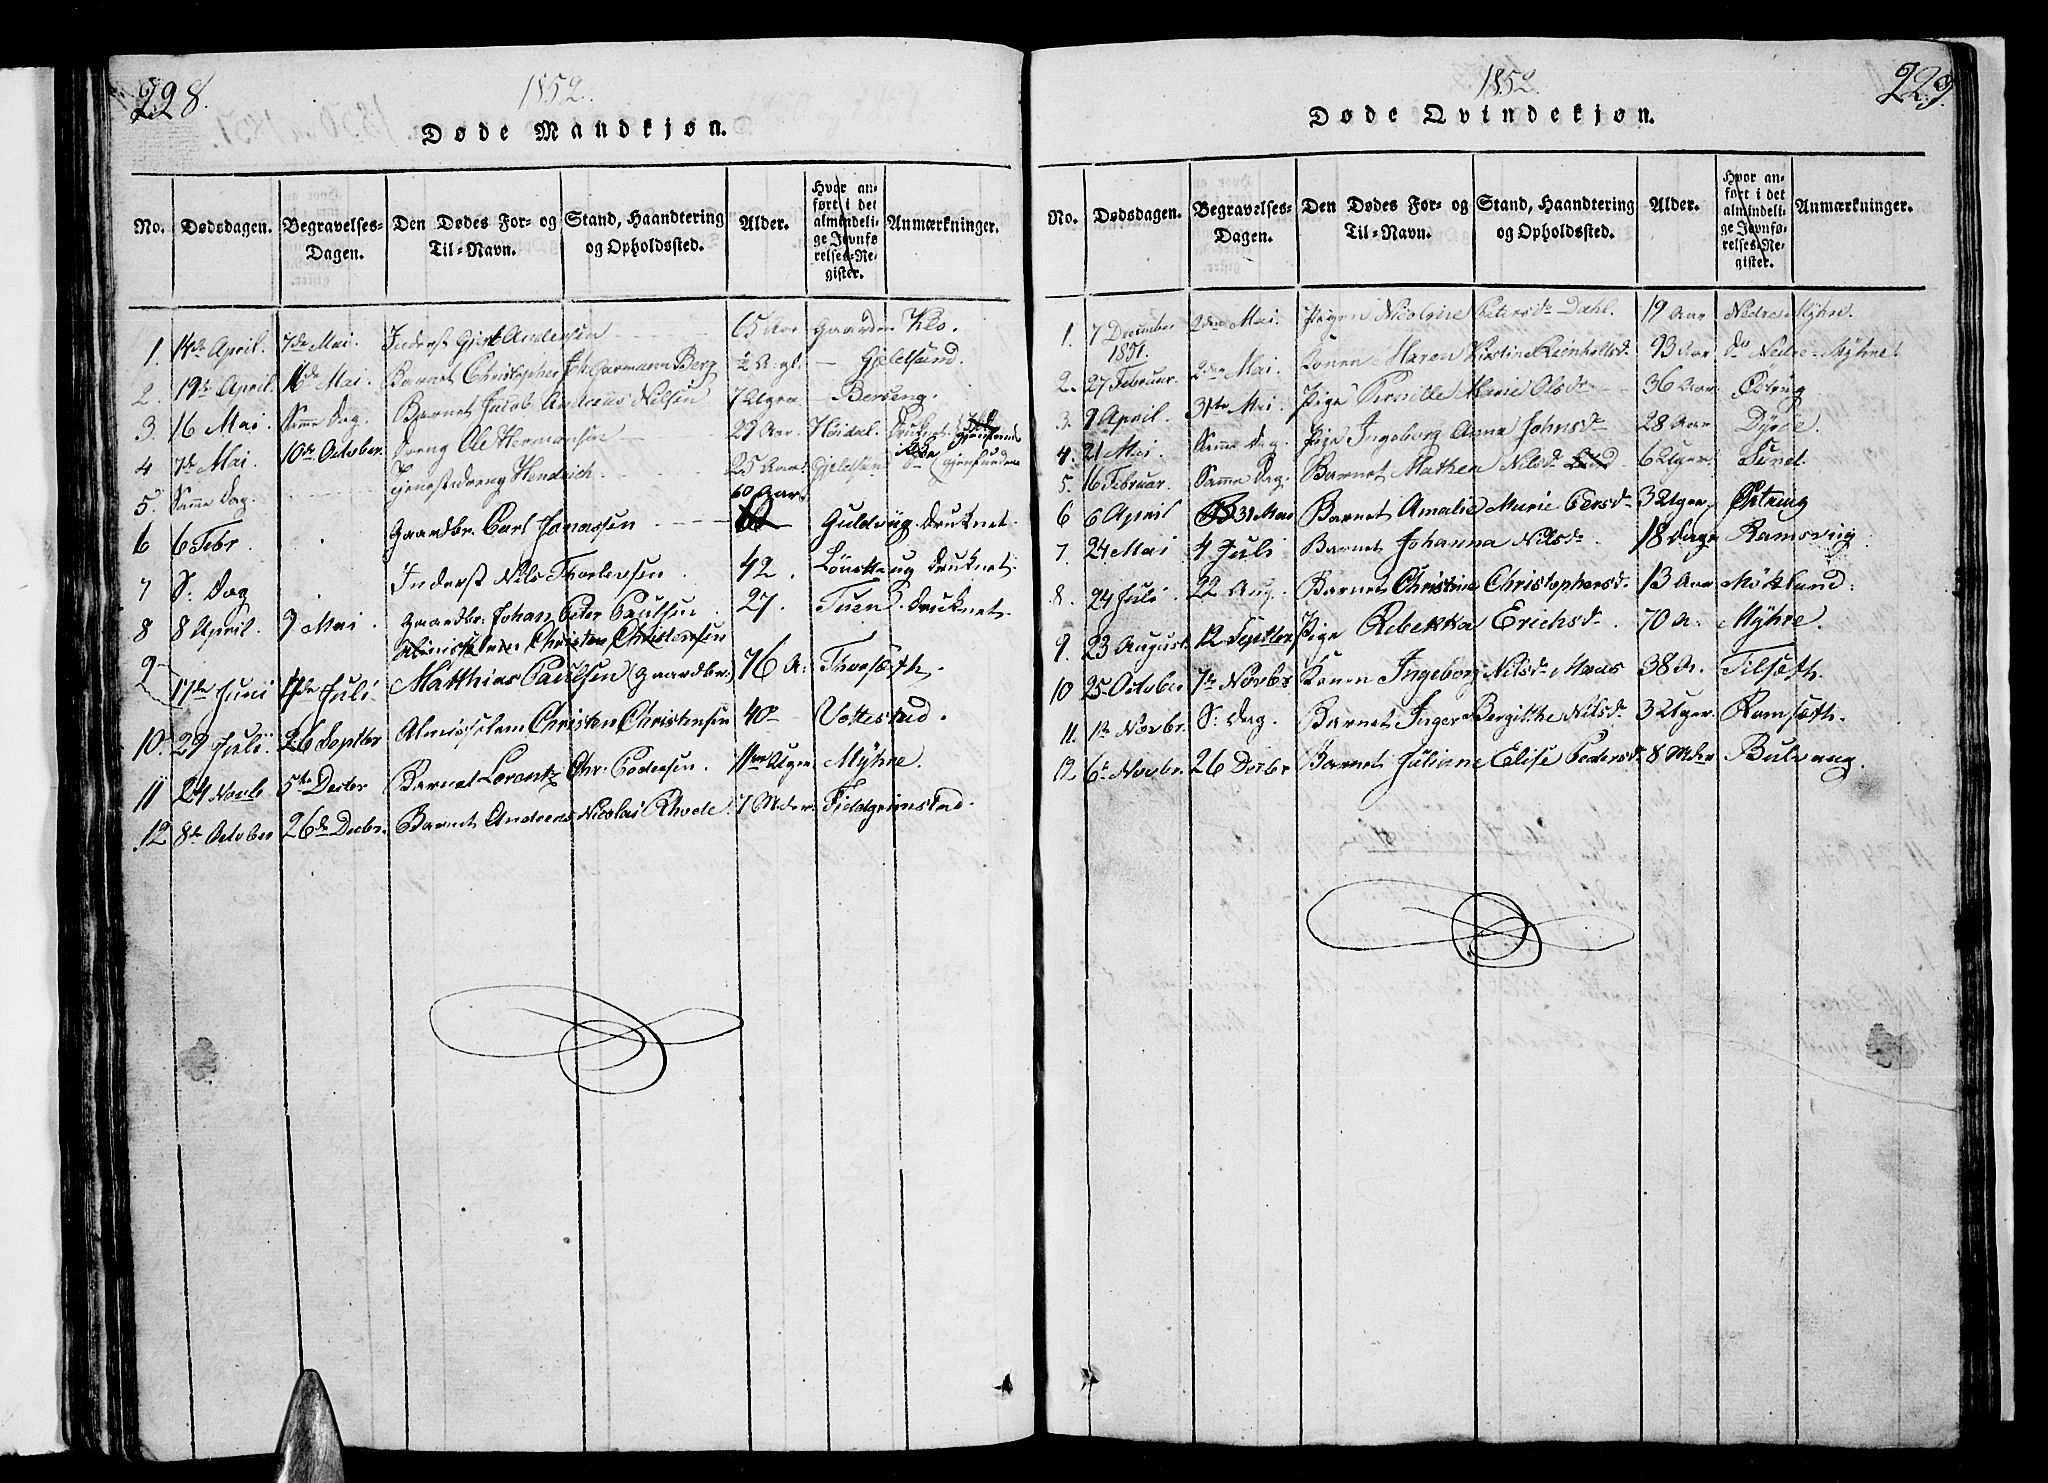 228.
1852.
Døde Mandkjøn.
No. Dødsdagen. Begravelses-Dagen. Den Dødes For- og Til-Navn. Stand, Haandtering og Opholdssted. Alder. Hvor anført i det almindelige Jevnførelses-Register. Anmærkninger.
1. 14de April. 7de Mai. Inderst Gjert Andersen 65 Aar Gaarden Klo.
2. 19de April Mai. Barnet Christopher Joh. Hermann Berg ½ A. gl. Gjelsund.
3. 16 Mai. Samme Dag. Barnet Jacob Andreas Nilsen 7 Uger Berseng.
4 7de Mai. 10de October. Dreng Ole Hermansen 29 Aar. Høidal. Druknet
5. Samme Dag. Tjenestedreng Hendrich. 25 Aar
6 6 Febr. Gaardbr. Carl Jonassen 60 Aar Guldvüg. Druknet.
7 S: Dag Inderst Nils Thorlevsen 42. Druknet.
8 8 April. 9 Mai. Gaardbr. Johan Peter Paulsen. 27. Tuen. Druknet.
Christen Christensen
9 17de Juni 4de Juli. Matthias Paulsen (Gaardbr.) 76 A.
10. 29 Juli. 26 Septbr Almisselem Christen Christensen 40 Vottestad.
11 24 Novb. 5te Decbr Barnet Lorentz Chr. Pedersen. 11 Uger Mÿhre.
12 8de October 26de Decbr. Barnet Andreas Nicolai Rhode. 7 Mdr. Fiddgrimstad.
229.
1852.
Døde Qvindekjøn.
No. Dødsdagen. Begravelses-Dagen. Den Dødes For- og Til-Navn. Stand, Haandtering og Opholdssted. Alder. Hvor anført i det almindelige Jevnførelses-Register. Anmærkninger.
1. 7 December 1851. 2den Mai. Pigen Nicoline Petersdr Dahl. 19 Aar Nedre Mÿhre.
2. 27 Februar. 2den Mai. Konen Maren Kirstine Reinholtsdr. 93 Aar do Nedre Mÿhre.
3. 9 April. 31te Mai. Pige Pernille Marie Olsdr 36 Aar
4. 21 Mai. Samme Dag. Pige Ingeborg Anna Johnsdr 28 Aar Dÿrøe.
5. 16 Februar. Samme Dag. Barnet Mathea Nilsdr 6 Uger.
6 6 April 31 Mai Barnet Amalie Marie Persdr 3 Uger
7. 24 Mai 4 Juli Barnet Johanna Nilsdr. 18 Dage Ramsvüg.
8. 24 Juli 22 Aug. Barnet Christine Christophersd. 13 Aar Møkland.
9. 23 August 12 Septbr Pige Rebekka Erichsdr. 70 A. Mÿhre.
10 25 October 7de Novbr Konen Ingeborg Nilsdr Maus 38 A. Tilseth.
11. 1te Novbr. S: Dag. Barnet Inger Bergitthe Nilsdr. 3 Uger Ramseth.
12 6te Novbr. 26 Decbr Barnet Juliane Elise Pedersd. 8 Mdr Bulvaag.